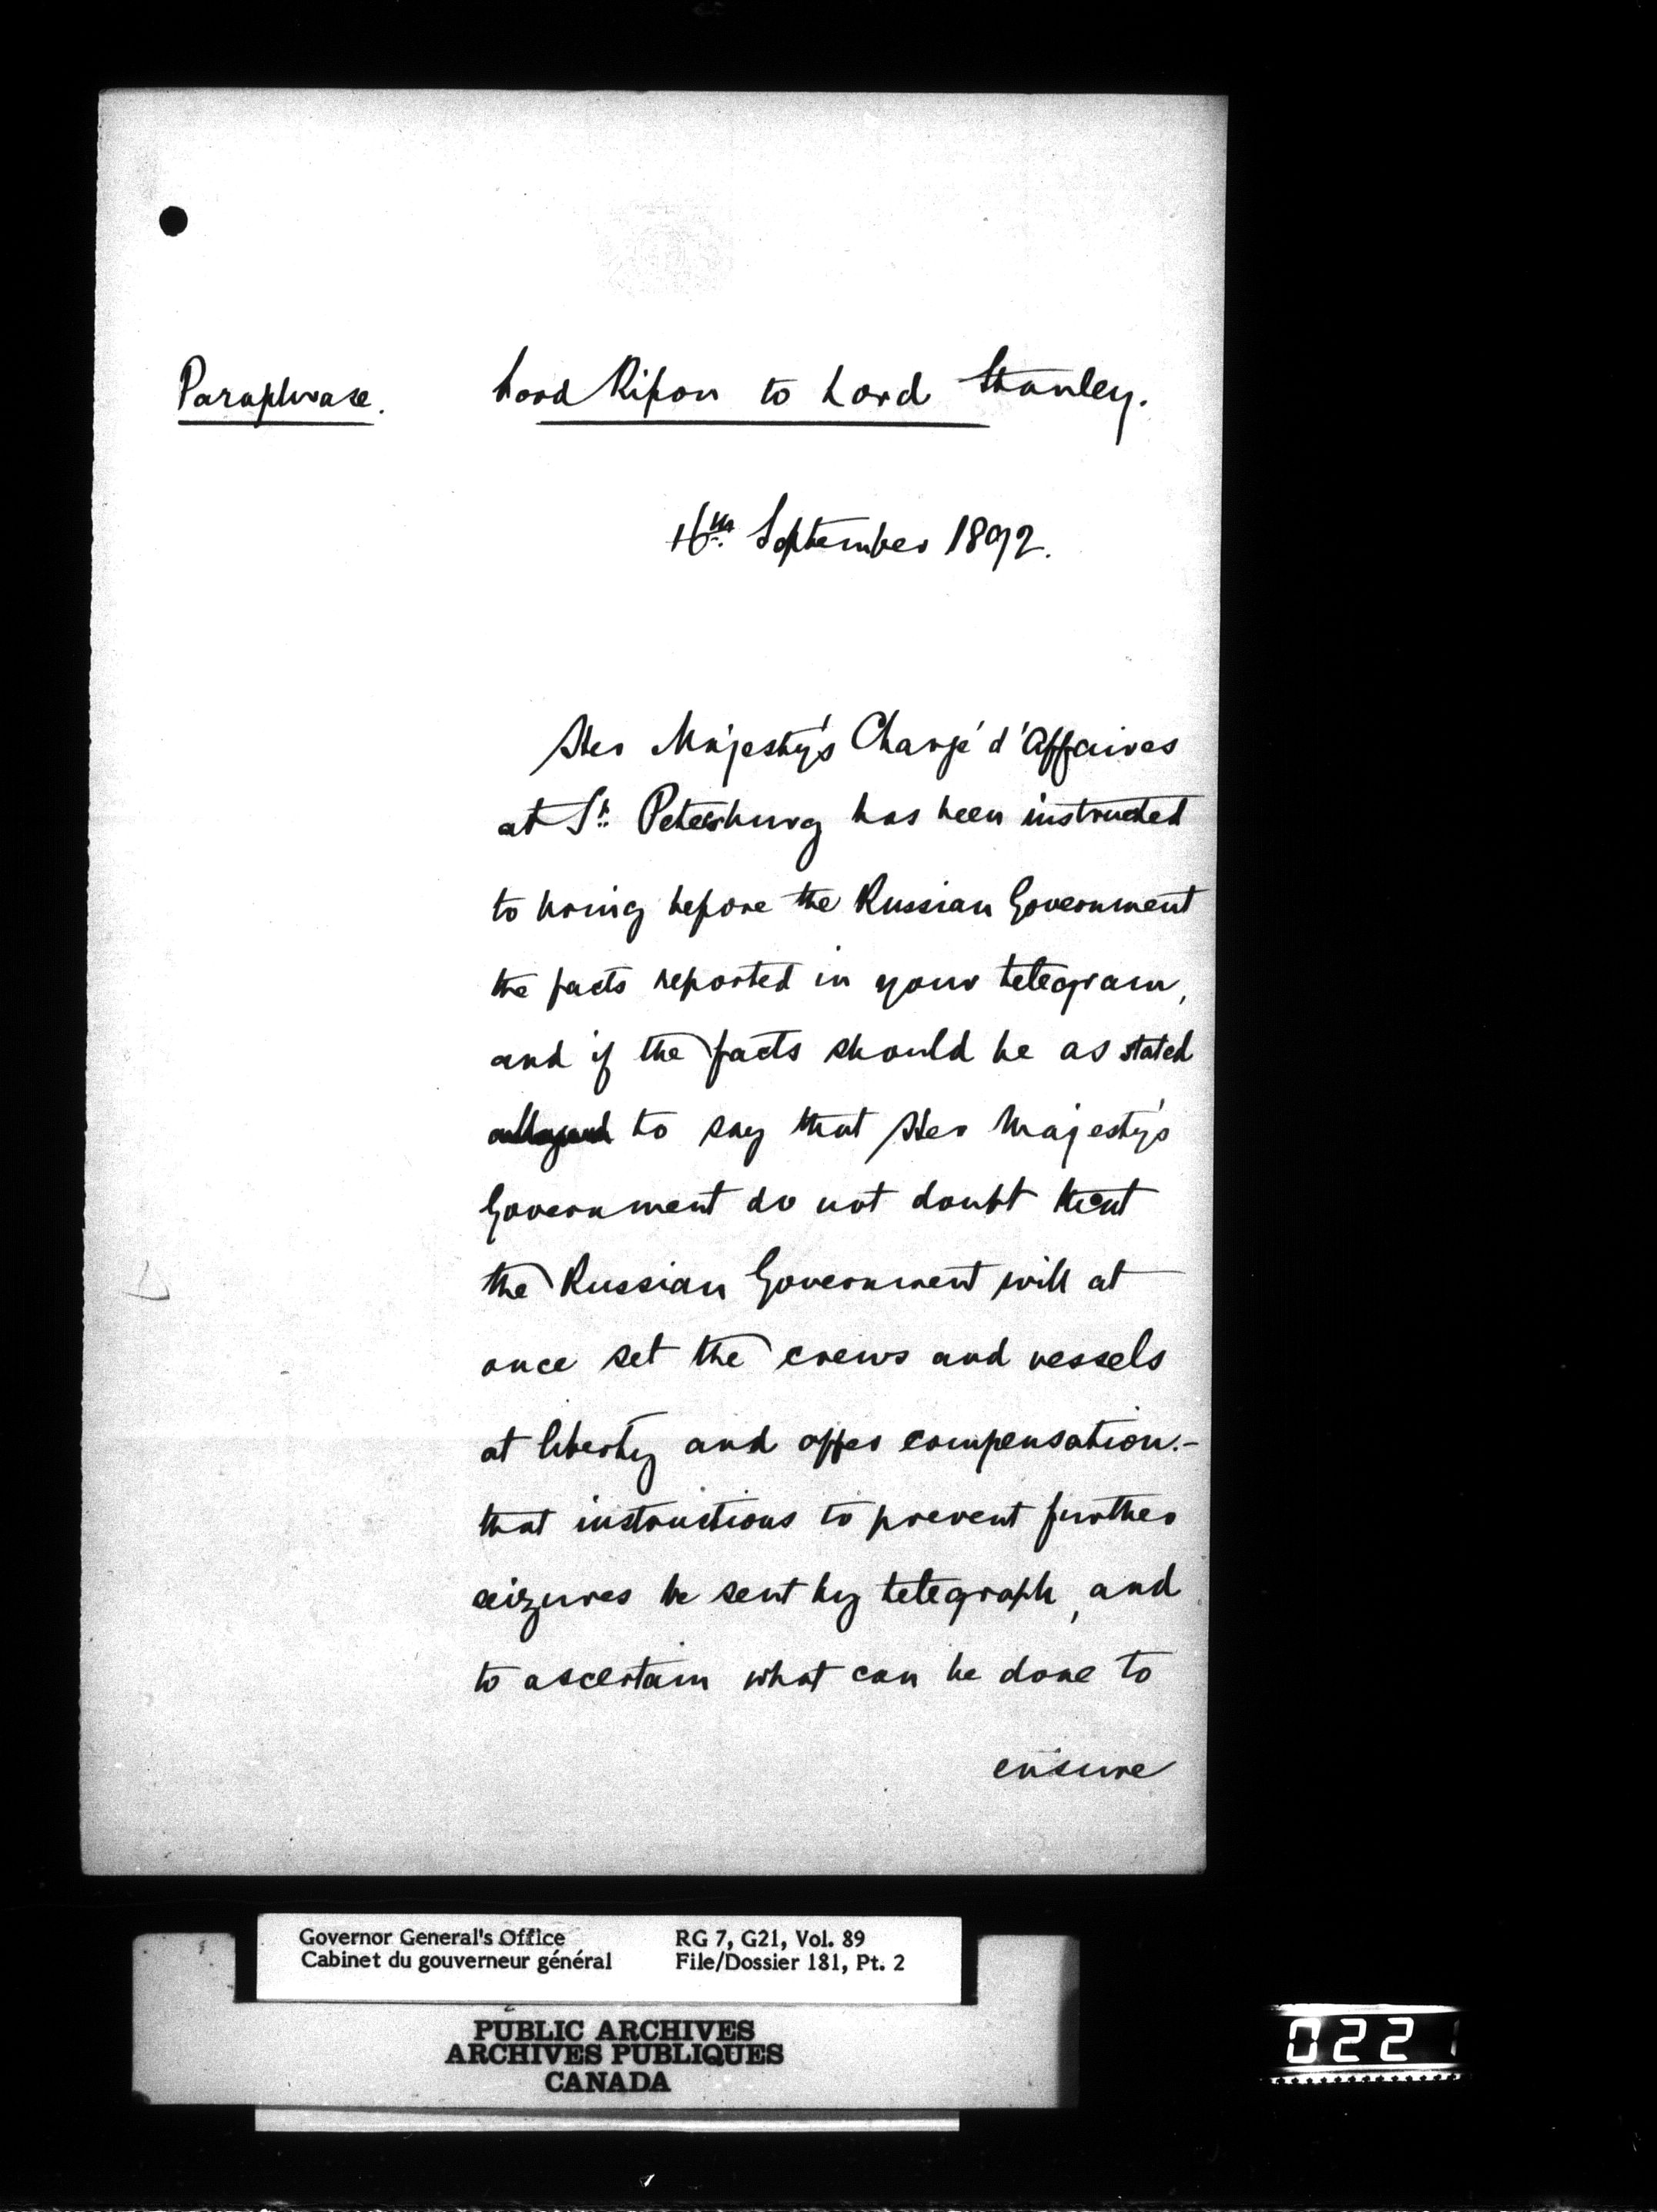 Paraphrase.
Lord Ripon to Lord Stanley.
16th September 1892.
Her Majesty's Chargé d'Affaires
at St. Petersburg has been instructed
to bring before the Russian Government
the facts reported in your telegram,
and if the facts should be as stated
to say that Her Majesty's
Government do not doubt that
the Russian Government will at
once set the crews and vessels
at liberty and offer compensation.-
that instructions to prevent further
seizures be sent by telegraph, and
to ascertain what can be done to
ensure
Governor General's Office RG 7, G21, Vol. 89
Cabinet du gouverneur général File/Dossier 181, Pt. 2
PUBLIC ARCHIVES
ARCHIVES PUBLIQUES
CANADA
022